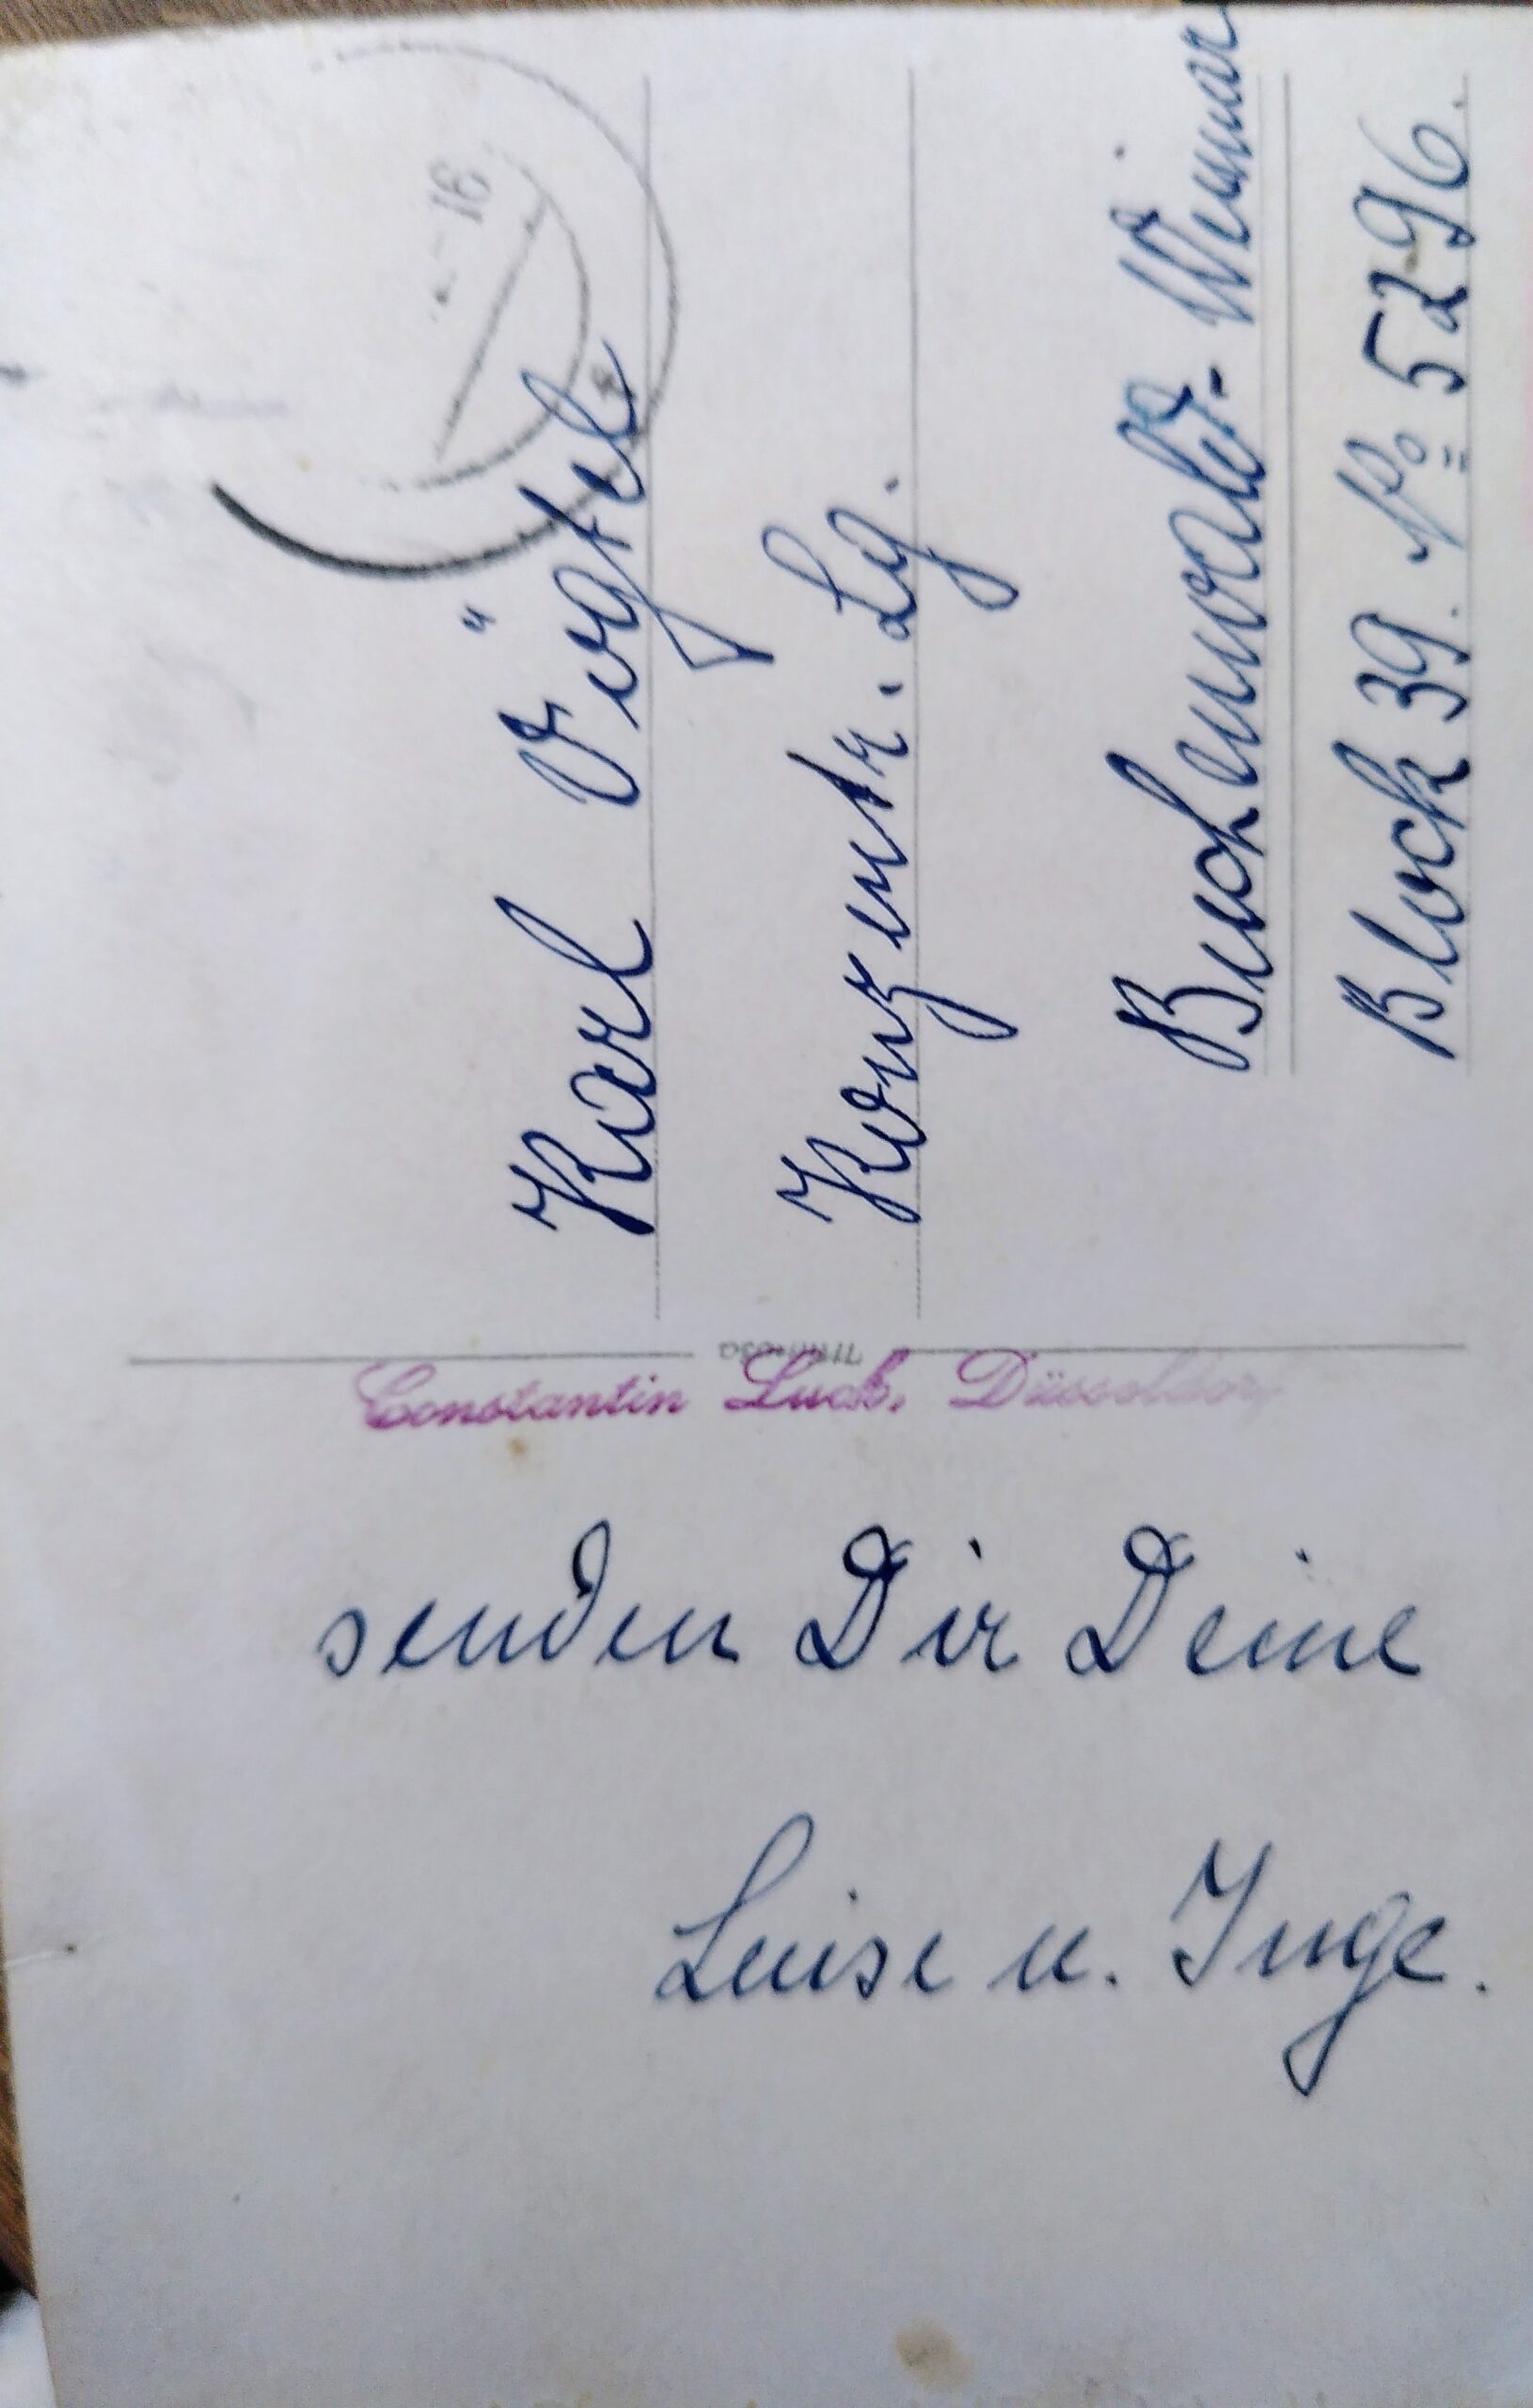 Karl Vögtel
Konzentr. Lg.
Buchenwald - Weimar
Block 39. No 5296.
Constantin Luck, Düsseldorf
senden Dir Deine
Luise u. Inge.